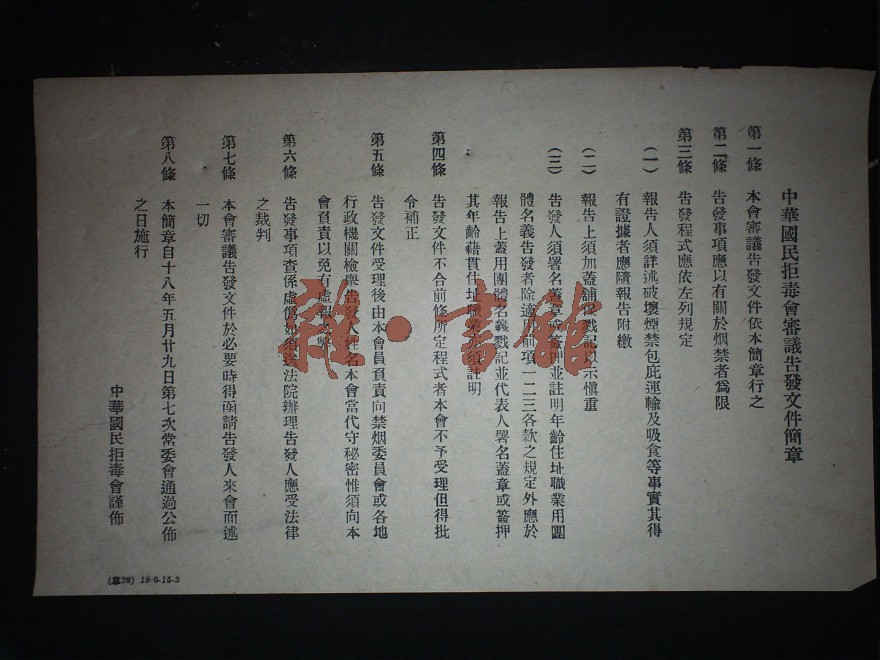 中華國民拒毒會審議告發文件簡章
第一條 本會審議告發文件依本簡章行之
第二條 告發事項應以有關於烟禁者爲限
第三條 告發程式應依左列規定
(一) 報告人須詳述破壞煙禁包庇運輸及吸食等事實其得
有證據者應隨報告附繳
(二) 報告上須加蓋舖保戳記以示愼重
(三) 告發人須署名蓋章或簽押並註明年齡住址職業用團
體名義告發者除適用前項一二三各款之規定外應於
報告上蓋用團體名義戳記並代表人署名蓋章或簽押
其年齡藉貫住址職業亦須註明
第四條 告發文件不合前條所定程式者本會不予受理但得批
令補正
第五條 告發文件受理後由本會員負責向禁烟委員會或各地
行政機關檢舉告發人姓名本會當代守秘密惟須向本
會負責以免有虛報之弊
第六條 告發事項查係虛僞 送法院辦理告發人應受法律
之裁判
第七條 本會審議告發文件於必要時得函請告發人來會面述
一切
第八條 本簡章自十八年五月廿九日第七次常委會通過公佈
之日施行
中華國民拒毒會謹佈
19-6-15-3
龍·書館